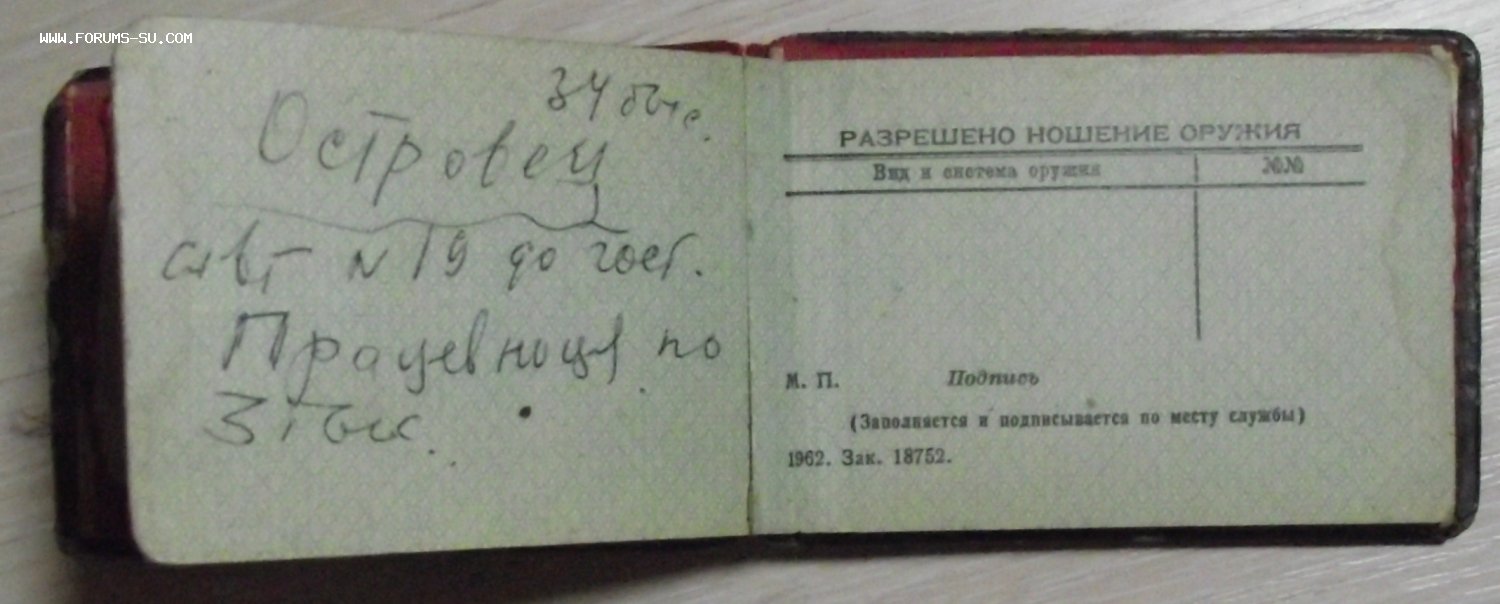 WWW.FORUMS-SU.COM
34 тыс.
Островец
авт N 19 до гост.
по
3 тыс.
РАЗРЕШЕНО НОШЕНИЕ ОРУЖИЯ
Вид и система оружия №№
М. П. Подпись
(Заполняется и подписывается по месту службы)
1962. Зак. 18752.